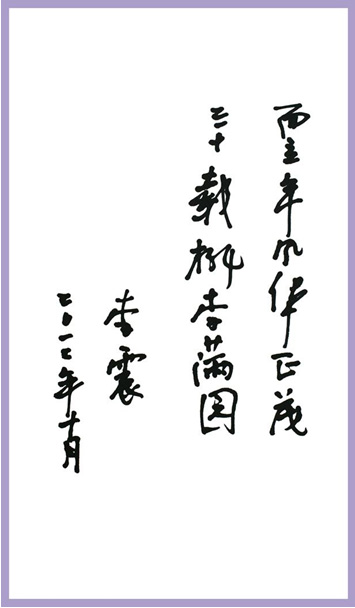 而立年风华正茂
三十载桃李满园
李震
二〇一二年十月